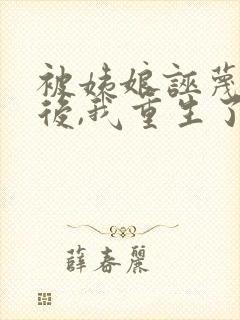 被姨娘誣蔑
後,我重生了
薛春麗